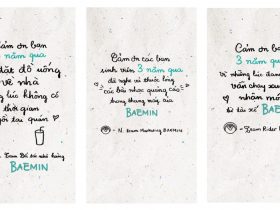 Cảm ơn bạn
3 năm qua
đặt đồ uống
về nhà
lúc không có
thời gian
tại quán
BAEMIN
Cảm ơn các bạn
sinh viên 3 năm qua
đã nghe và thuộc lòng
các bài nhạc quảng cáo
trong thang máy của
BAEMIN
- N. team Marketing BAEMIN
Cảm ơn bạn
3 năm qua
vì những lúc
vẫn chạy
BAEMIN
- Team Rider